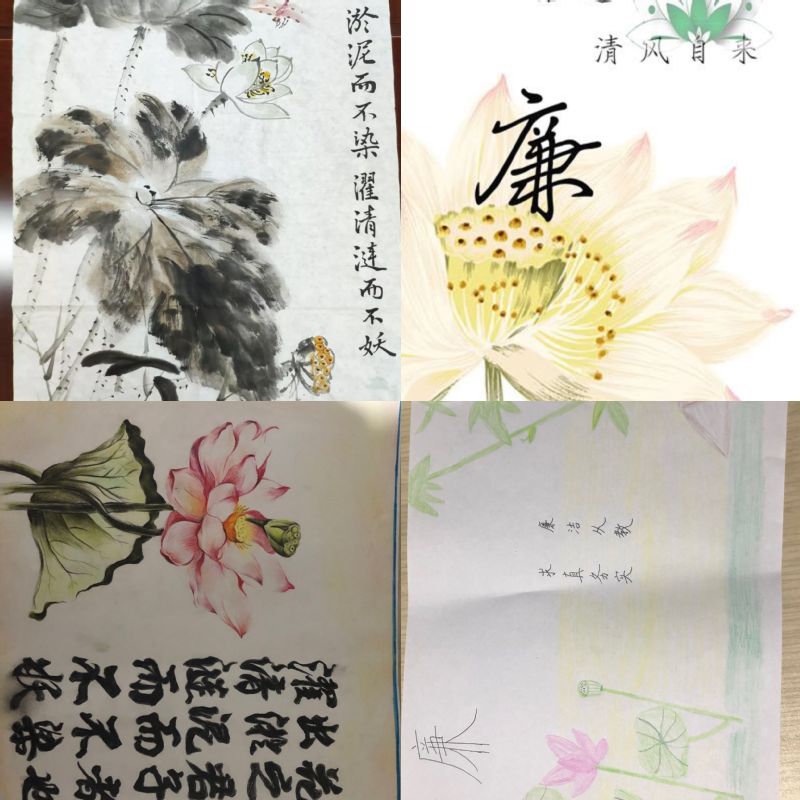 淤泥而不染濯清涟而不妖
清风自来
廉
濯清涟而不妖
出淤泥而不染
花之君子者也
廉洁从教
求真务实
廉